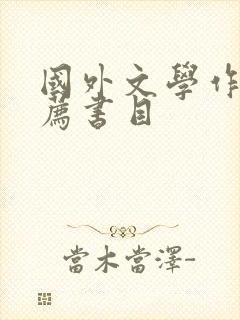 國外文學作
薦書目
當木當澤-